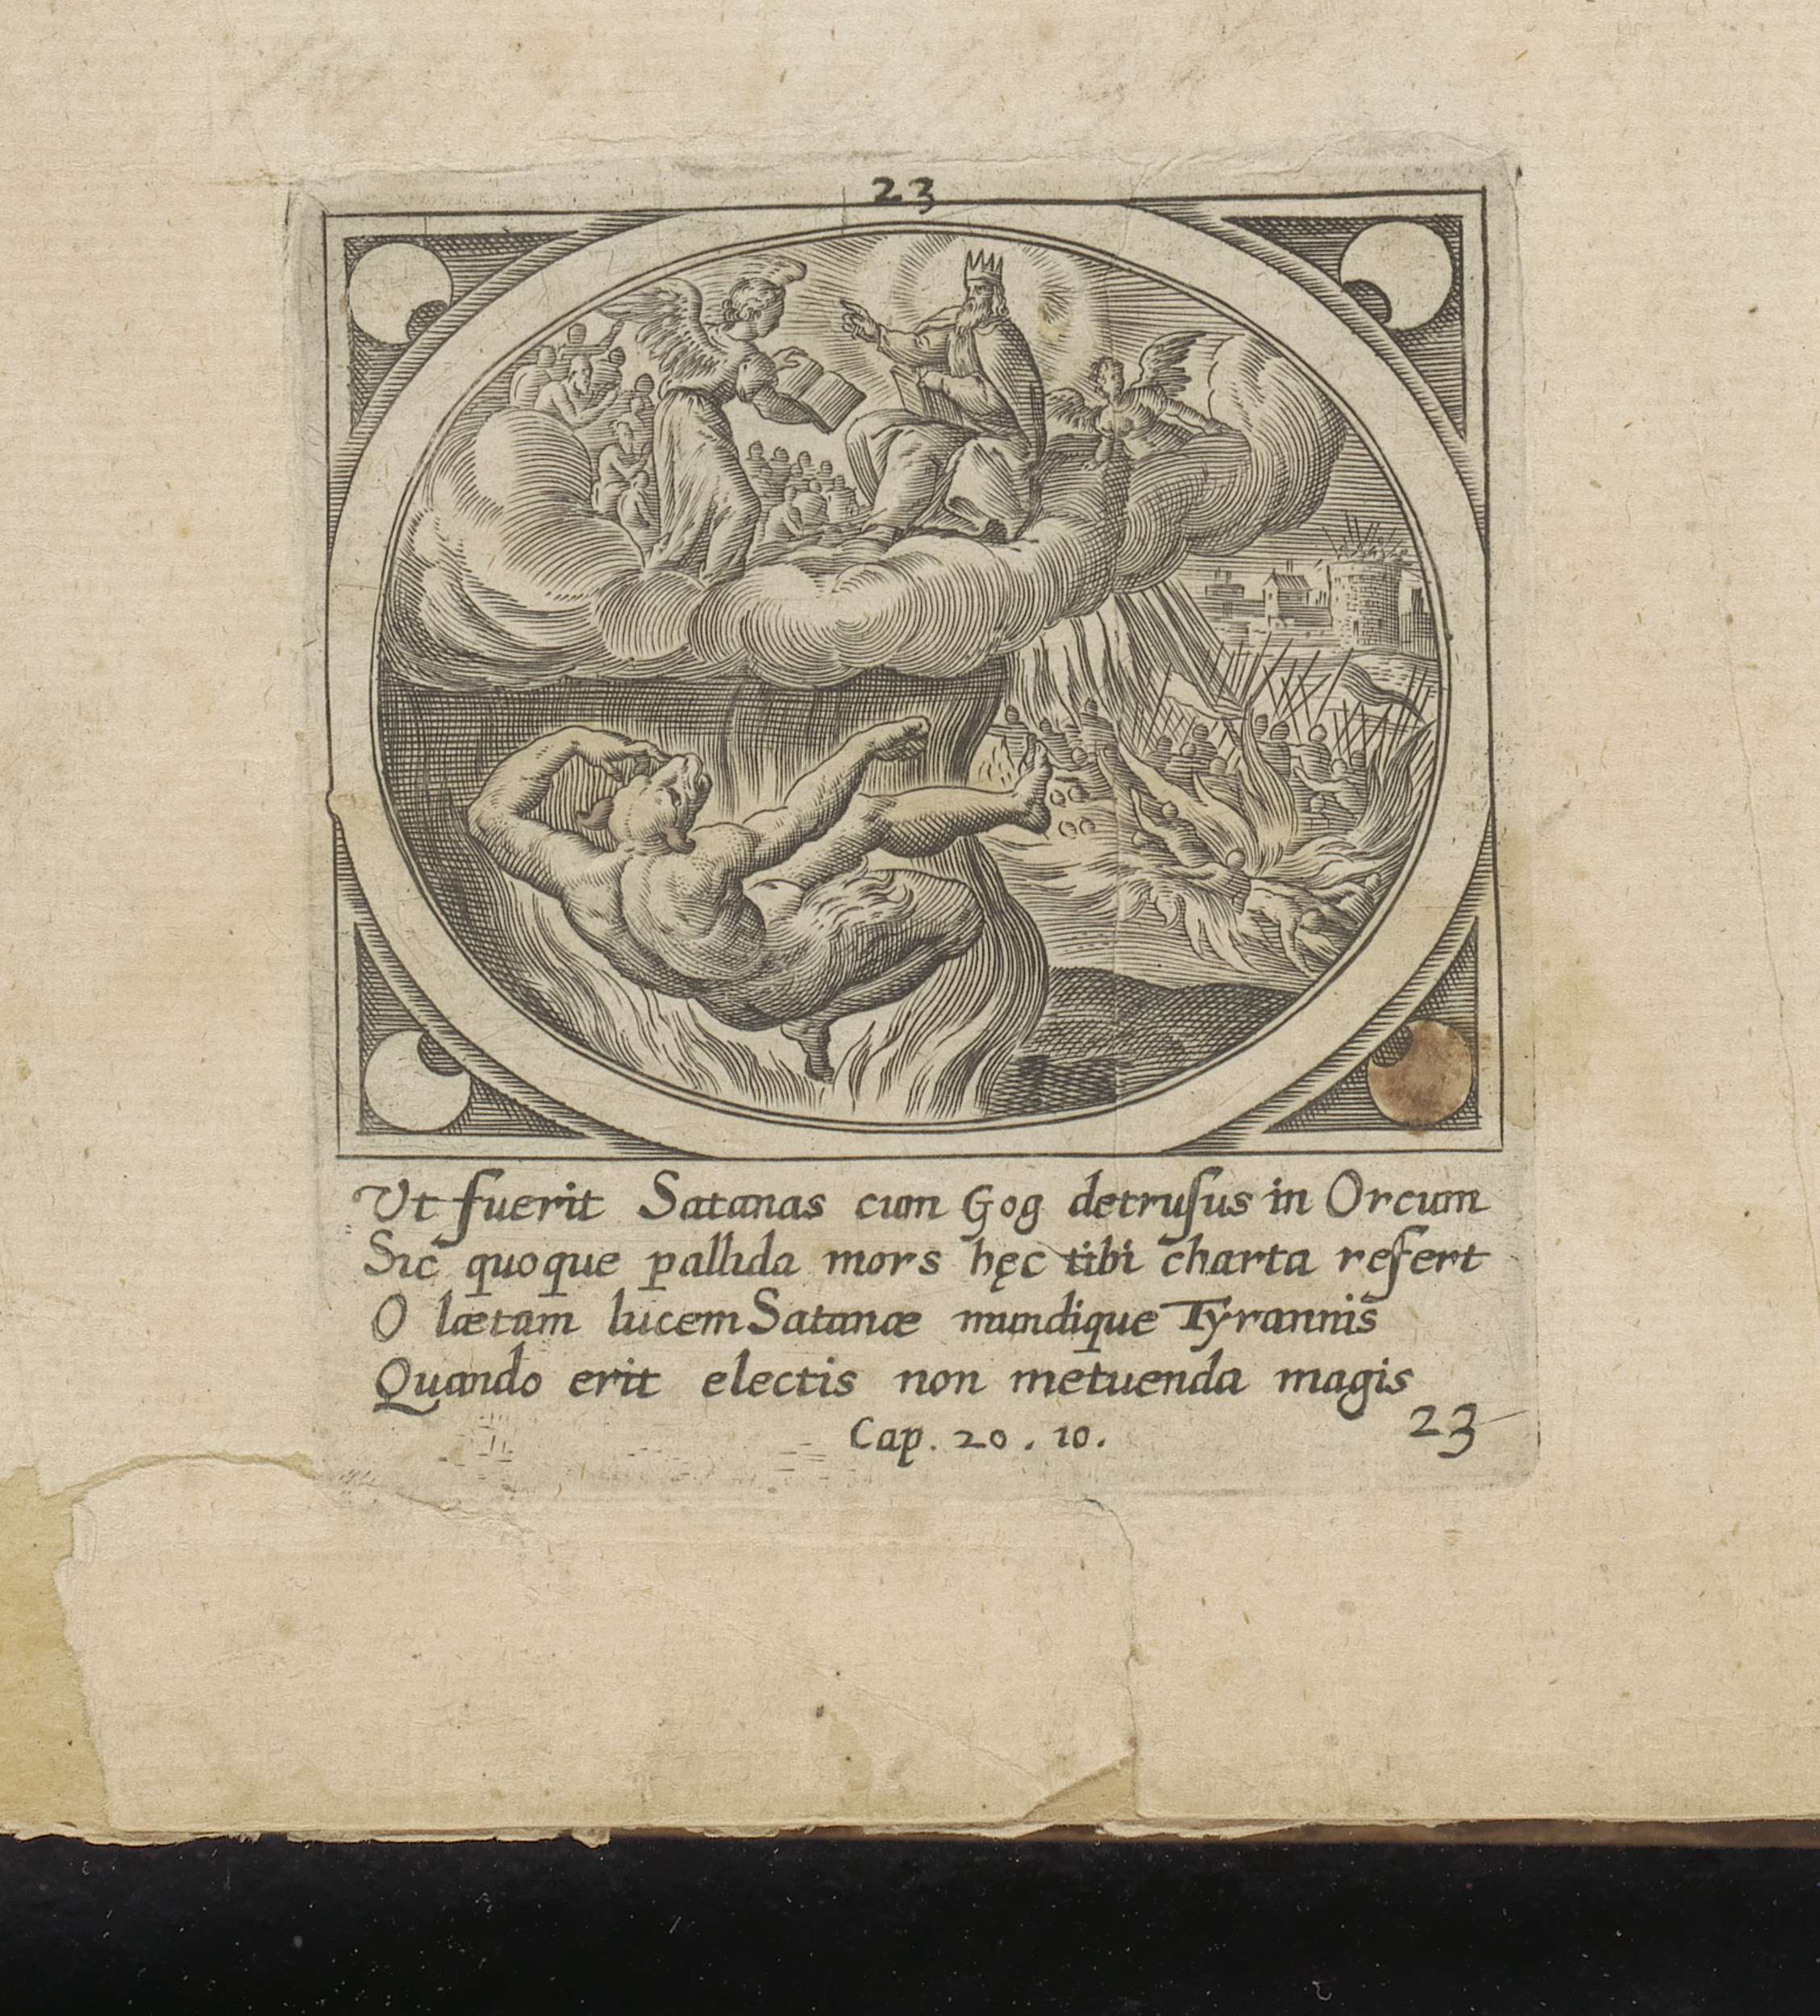 23
Ut fuerit Satanas cum Gog detruſus in Orcum
Sic quoque pallida mors hęc tibi charta refert
O lætam lucem Satanæ mundique Tyrannis
Quando erit electis non metuenda magis
23
Cap. 20. 10.